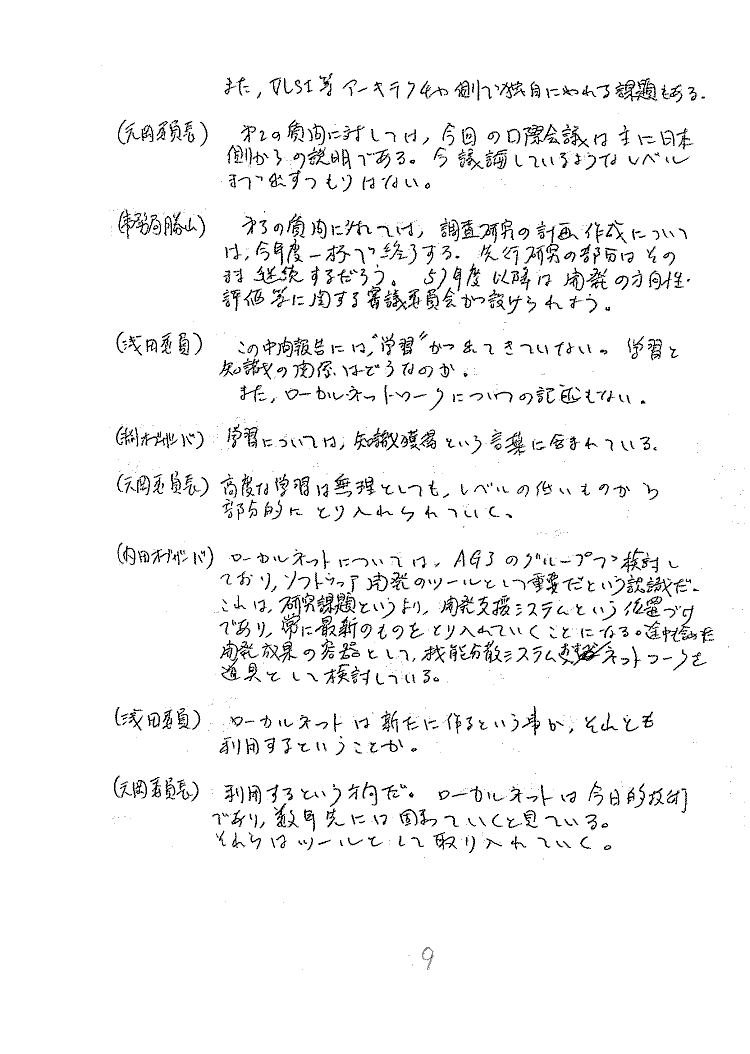 また,VLSI等アーキテクチャ側で独自にやれる課題もある.
(元岡委員長) 第2の質問に対しては,今回の国際会議は主に日本
側からの説明である。今議論しているようなレベル
まで出すつもりはない。
(事務局勝山) 第3の質問に対しては,調査研究の計画作成について
は,今年度一杯で終了する.先行研究の部分はその
まま継続するだろう。57年度以降は開発の方向性・
評価等に関する審議委員会が設けられよう。
(浅田委員) この中間報告には,"学習"が入れてきていない。学習と
知識の関係はどうなのか.
また,ローカルネットワークについての記述もない.
オブザーバ) 学習については,知識獲得という言葉に含まれている.
(元岡委員長) 高度な学習は無理としても,レベルの低いものから
部分的にとり入れられていく。
(内田オブザーバ) ローカルネットについては,AG3のグループで検討し
ており,ソフトウェア開発のツールとして重要だという認識だ.
これは,研究課題というより,開発支援システムという位置づけ
であり,常に最新のものをとり入れていくことになる。途中も含めた
開発成果の容器として,機能分散システム ネットワークを
道具として検討している。
(浅田委員) ローカルネットは新たに作るという事か,それとも
利用するということか。
(元岡委員長) 利用するという方向だ。ローカルネットは今日的技術
であり,数年先には固まっていくと見ている。
それらはツールとして取り入れていく。
9